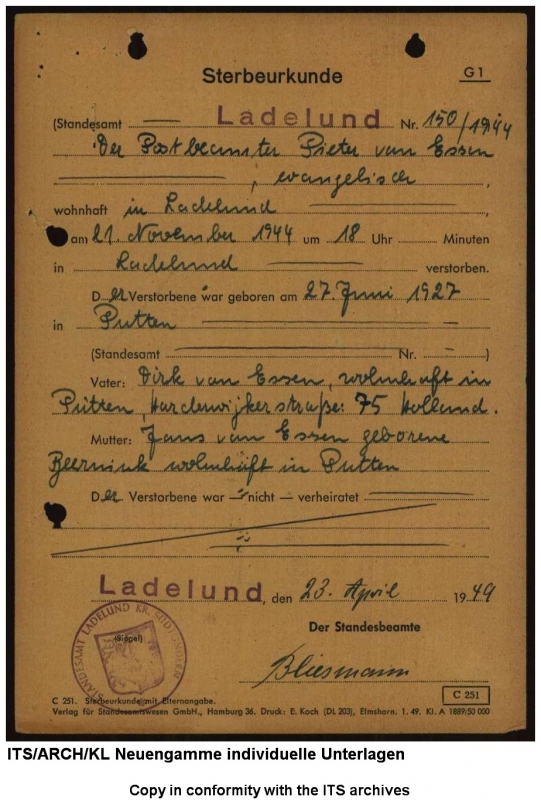 Sterbeurkunde
G 1
(Standesamt Ladelund Nr. 150/1944
Der Postbeamter Pieter van Essen
, evangelisch ,
wohnhaft in Ladelund ,
am 21. November 1944 um 18 Uhr Minuten
in Ladelund verstorben.
Der Verstorbene war geboren am 27. Juni 1927
in Putten
(Standesamt Nr. )
Vater: Dirk van Essen, wohnhaft in
Putten, Harderwijkerstraße: 75 Holland.
Mutter: Jans van Essen geborene
Beernink wohnhaft in Putten
Der Verstorbene war — nicht — verheiratet
Ladelund, den 23. April 1949
Der Standesbeamte
(Siegel)
STANDESAMT LADELUND KR. SÜDTONDERN
Bliesmann
C 251
C 251. Sterbeurkunde mit Elternangabe.
Verlag für Standesamtswesen GmbH., Hamburg 36. Druck: E. Koch (DL 203), Elmshorn. 1. 49. Kl. A 1889/50 000
ITS/ARCH/KL Neuengamme individuelle Unterlagen
Copy in conformity with the ITS archives